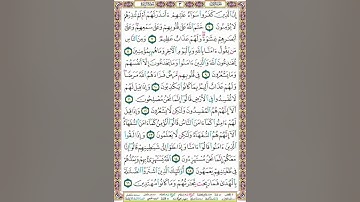 إِنَّ الَّذِينَ كَفَرُوا سَوَاءٌ عَلَيْهِمْ ءَأَنذَرْتَهُمْ أَمْ لَمْ تُنذِرْهُمْ
لَا يُؤْمِنُونَ خَتَمَ اللَّهُ عَلَىٰ قُلُوبِهِمْ وَعَلَىٰ سَمْعِهِمْ وَعَلَىٰ
أَبْصَٰرِهِمْ غِشَٰوَةٌ وَلَهُمْ عَذَابٌ عَظِيمٌ وَمِنَ النَّاسِ
مَن يَقُولُ ءَامَنَّا بِاللَّهِ وَبِالْيَوْمِ الْءَاخِرِ وَمَا هُم بِمُؤْمِنِينَ
يُخَٰدِعُونَ اللَّهَ وَالَّذِينَ ءَامَنُوا وَمَا يَخْدَعُونَ إِلَّا أَنفُسَهُمْ
وَمَا يَشْعُرُونَ فِي قُلُوبِهِم مَّرَضٌ فَزَادَهُمُ اللَّهُ مَرَضًا
وَلَهُمْ عَذَابٌ أَلِيمٌ بِمَا كَانُوا يَكْذِبُونَ وَإِذَا قِيلَ لَهُمْ
لَا تُفْسِدُوا فِي الْأَرْضِ قَالُوا إِنَّمَا نَحْنُ مُصْلِحُونَ
أَلَا إِنَّهُمْ هُمُ الْمُفْسِدُونَ وَلَٰكِن لَّا يَشْعُرُونَ وَإِذَا قِيلَ
لَهُمْ ءَامِنُوا كَمَا ءَامَنَ النَّاسُ قَالُوا أَنُؤْمِنُ كَمَا ءَامَنَ السُّفَهَاءُ
أَلَا إِنَّهُمْ هُمُ السُّفَهَاءُ وَلَٰكِن لَّا يَعْلَمُونَ وَإِذَا لَقُوا
الَّذِينَ ءَامَنُوا قَالُوا ءَامَنَّا وَإِذَا خَلَوْا إِلَىٰ شَيَٰطِينِهِمْ قَالُوا إِنَّا
مَعَكُمْ إِنَّمَا نَحْنُ مُسْتَهْزِءُونَ اللَّهُ يَسْتَهْزِئُ بِهِمْ وَيَمُدُّهُمْ
فِي طُغْيَٰنِهِمْ يَعْمَهُونَ أُولَٰئِكَ الَّذِينَ اشْتَرَوُا الضَّلَٰلَةَ
بِالْهُدَىٰ فَمَا رَبِحَت تِّجَٰرَتُهُمْ وَمَا كَانُوا مُهْتَدِينَ